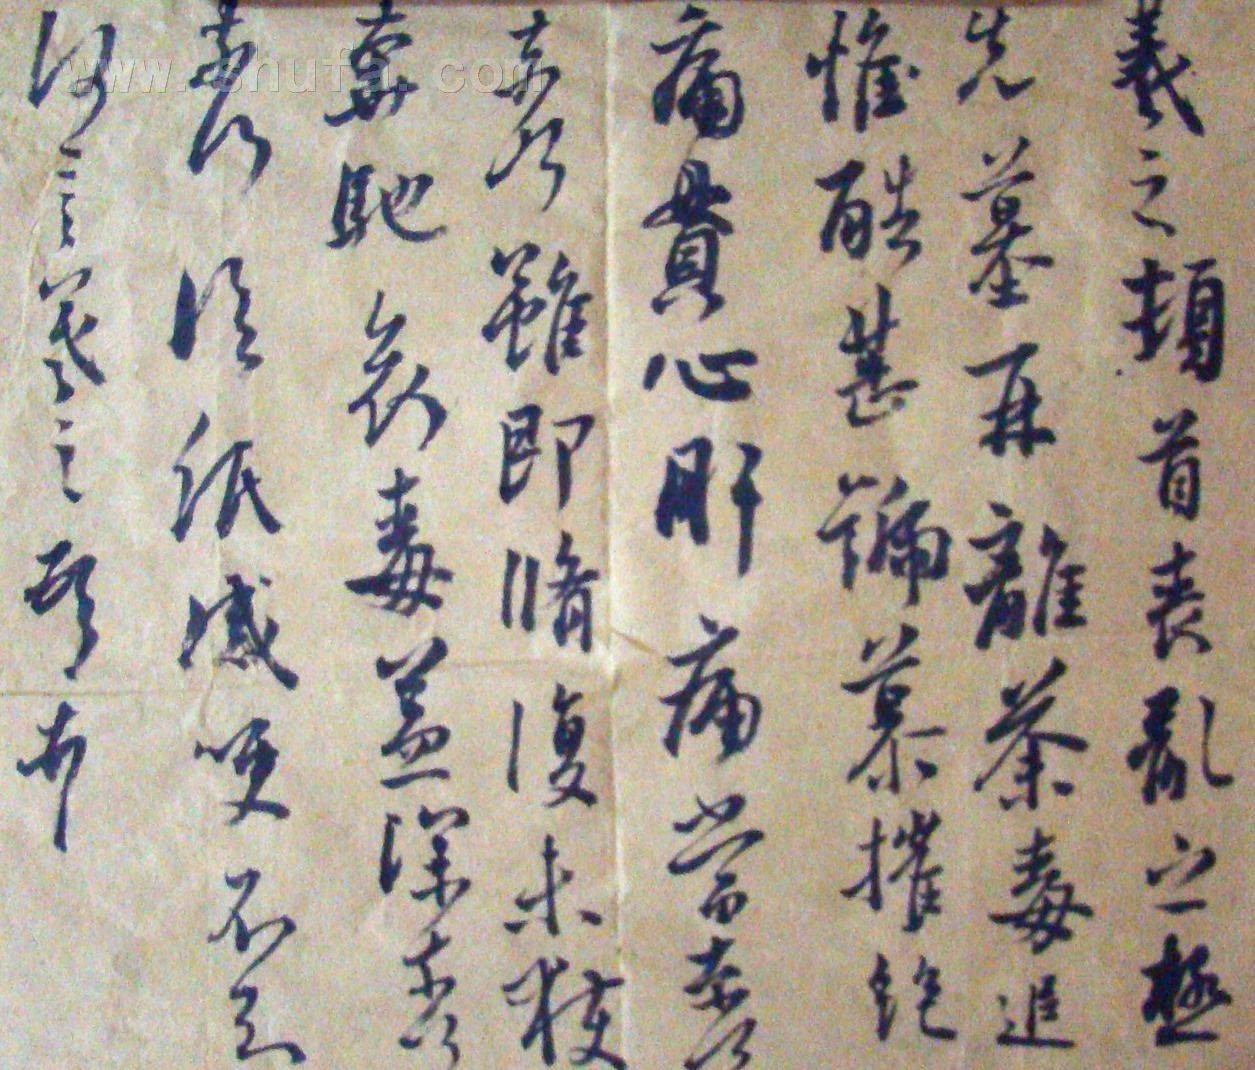 羲之頓首喪亂之極
先墓再離荼毒追
惟酷甚號慕摧絕
痛貫心肝痛當奈何
奈何雖即脩復未獲
奔馳哀毒益深奈
奈何臨紙感哽不知
何言羲之頓首
www.shufa.com